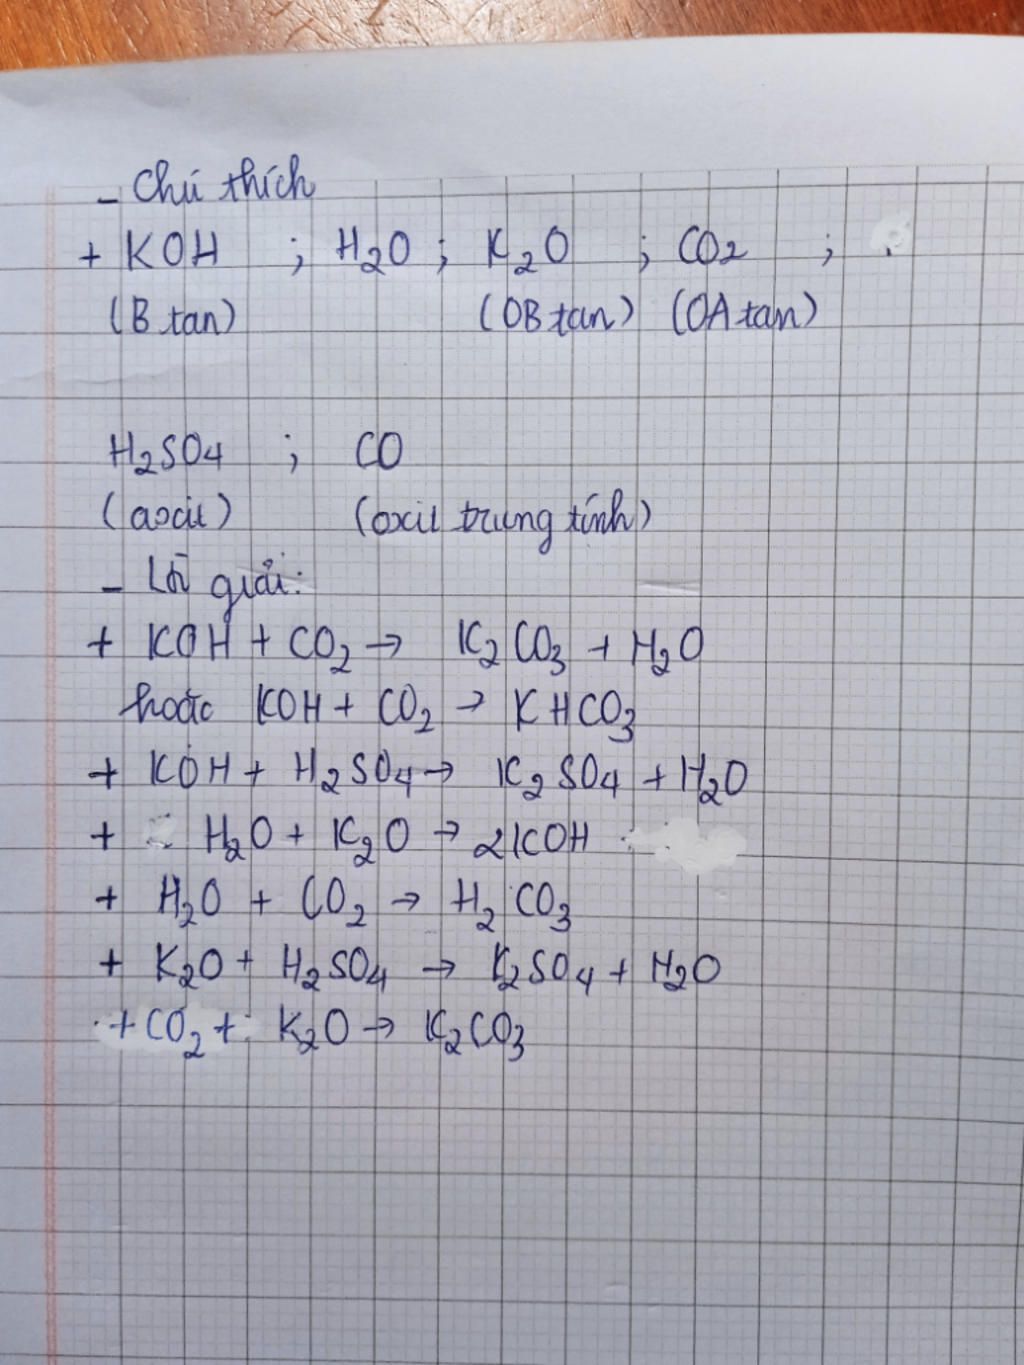 - Chú thích
+ KOH ; H2O ; K2O ; CO2 ;
(B tan) (OB tan) (OA tan)
H2SO4 ; CO
(axit) (oxit trung tính)
- Lời giải:
+ KOH + CO2 → K2CO3 + H2O
hoặc KOH + CO2 → KHCO3
+ KOH + H2SO4 → K2SO4 + H2O
+ H2O + K2O → 2KOH
+ H2O + CO2 → H2CO3
+ K2O + H2SO4 → K2SO4 + H2O
+ CO2 + K2O → K2CO3